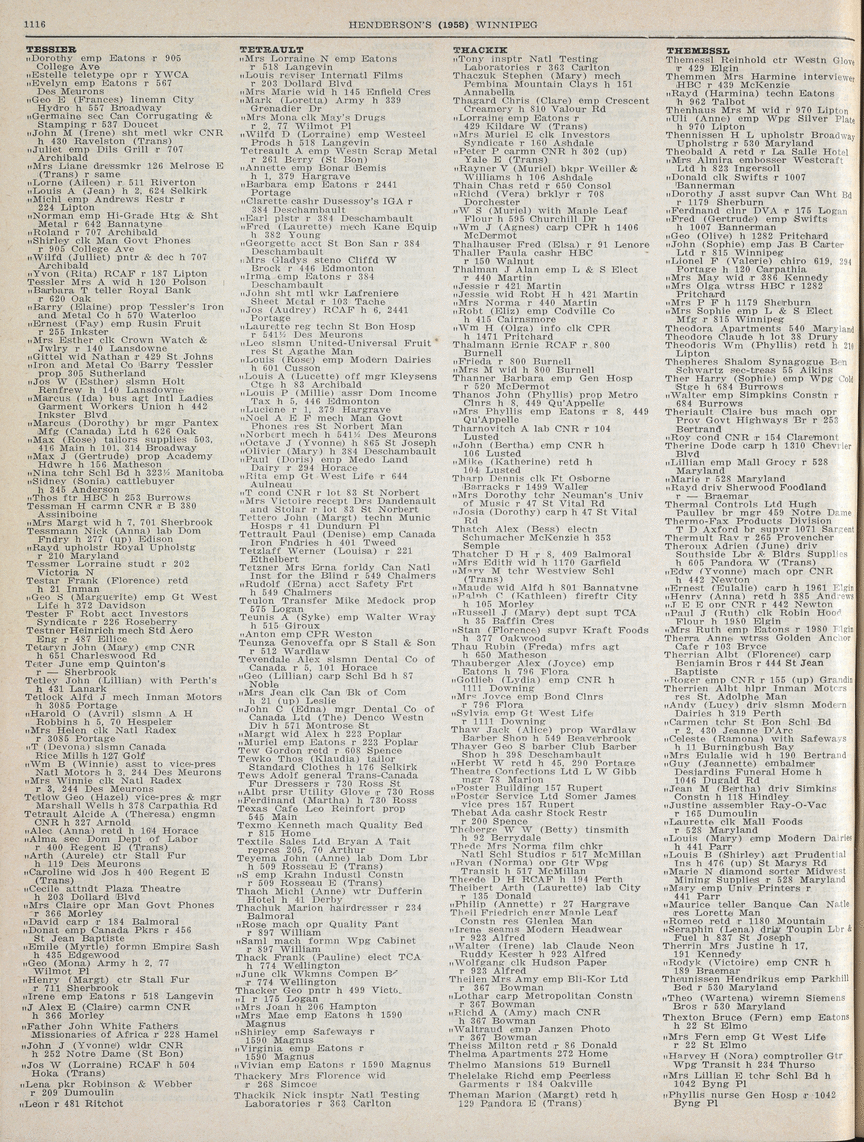 1116
HENDERSON'S (1958) WINNIPEG
TESSIER
"Dorothy emp Eatons r 905
College Ave
"Estelle teletype opr r YWCA
"Evelyn emp Eatons r 567
Des Meurons
"Geo E (Frances) linemn City
Hydro h 557 Broadway
"Germaine sec Can Corrugating &
Stamping r 537 Doucet
"John M (Irene) sht metl wkr CNR
h 430 Ravelston (Trans)
"Juliet emp Dils Grill r 707
Archibald
"Mrs Liane dressmkr 126 Melrose E
(Trans) r same
"Lorne (Aileen) r 511 Riverton
"Louis A (Jean) h 2, 624 Selkirk
"Michl emp Andrews Restr r
224 Lipton
"Norman emp Hi-Grade Htg & Sht
Metal r 642 Bannatyne
"Roland r 707 Archibald
"Shirley clk Man Govt Phones
r 905 College Ave
"Wilfd (Julliet) pntr & dec h 707
Archibald
"Yvon (Rita) RCAF r 187 Lipton
Tessler Mrs A wid h 120 Polson
"Barbara T teller Royal Bank
r 620 Oak
"Barry (Elaine) prop Tessler's Iron
and Metal Co h 570 Waterloo
"Ernest (Fay) emp Rusin Fruit
r 255 Inkster
"Mrs Esther clk Crown Watch &
Jwlry r 140 Lansdowne
"Gittel wid Nathan r 429 St Johns
"Iron and Metal Co Barry Tessler
prop 305 Sutherland
"Jos W (Esther) slsmn Holt
Renfrew h 140 Lansdowne
"Marcus (Ida) bus agt Intl Ladies
Garment Workers Union h 442
Inkster Blvd
"Marcus (Dorothy) br mgr Pantex
Mfg (Canada) Ltd h 626 Oak
"Max (Rose) tailors supplies 503,
416 Main h 101, 314 Broadway
"Max J (Gertrude) prop Academy
Hdwre h 156 Matheson
"Nina tchr Schl Bd h 323½ Manitoba
"Sidney (Sonia) cattlebuyer
h 345 Anderson
"Thos ftr HBC h 253 Burrows
Tessman H carmn CNR r B 380
Assiniboine
"Mrs Margt wid h 7, 701 Sherbrook
Tessmann Nick (Anna) lab Dom
Fndry h 277 (up) Edison
"Rayd upholstr Royal Upholstg
r 210 Maryland
Tessmer Lorraine studt r 202
Victoria N
Testar Frank (Florence) retd
h 21 Inman
"Geo S (Marguerite) emp Gt West
Life h 372 Davidson
Tester F Robt acct Investors
Syndicate r 226 Roseberry
Testner Heinrich mech Std Aero
Eng r 487 Ellice
Tetaryn John (Mary) emp CNR
h 651 Charleswood Rd
Teter June emp Quinton's
r — Sherbrook
Tetley John (Lillian) with Perth's
h 431 Lanark
Tetlock Alfd J mech Inman Motors
h 3085 Portage
"Harold O (Avril) slsmn A H
Robbins h 5, 70 Hespeler
"Mrs Helen clk Natl Radex
r 3085 Portage
"T (Devona) slsmn Canada
Rice Mills h 127 Golf
"Wm B (Winnie) asst to vice-pres
Natl Motors h 3, 244 Des Meurons
"Mrs Winnie clk Natl Radex
r 3, 244 Des Meurons
Tetlow Geo (Hazel) vice-pres & mgr
Marshall Wells h 378 Carpathia Rd
Tetrault Alcide A (Theresa) engmn
CNR h 327 Arnold
"Alec (Anna) retd h 164 Horace
"Alma sec Dom Dept of Labor
r 400 Regent E (Trans)
"Arth (Aurele) ctr Stall Fur
h 119 Des Meurons
"Caroline wid Jos h 400 Regent E
(Trans)
"Cecile attndt Plaza Theatre
h 203 Dollard Blvd
"Mrs Claire opr Man Govt Phones
r 366 Morley
"David carp r 184 Balmoral
"Donat emp Canada Pkrs r 456
St Jean Baptiste
"Emile (Myrtle) formn Empire Sash
h 435 Edgewood
"Geo (Mona) Army h 2, 77
Wilmot Pl
"Henry (Margt) ctr Stall Fur
r 711 Sherbrook
"Irene emp Eatons r 518 Langevin
"J Alex E (Claire) carmn CNR
h 366 Morley
"Father John White Fathers
Missionaries of Africa r 228 Hamel
"John J (Yvonne) wldr CNR
h 252 Notre Dame (St Bon)
"Jos W (Lorraine) RCAF h 504
Hoka (Trans)
"Lena pkr Robinson & Webber
r 209 Dumoulin
"Leon r 481 Ritchot
TETRAULT
"Mrs Lorraine N emp Eatons
r 518 Langevin
"Louis reviser Internatl Films
r 203 Dollard Blvd
"Mrs Marie wid h 145 Enfield Cres
"Mark (Loretta) Army h 339
Grenadier Dr
"Mrs Mona clk May's Drugs
r 2, 77 Wilmot Pl
"Wilfd D (Lorraine) emp Westeel
Prods h 518 Langevin
Tetreault A emp Westn Scrap Metal
r 261 Berry (St Bon)
"Annette emp Bonar Bemis
h 1, 379 Hargrave
"Barbara emp Eatons r 2441
Portage
"Clarette cashr Dusessoy's IGA r
384 Deschambault
"Earl plstr r 384 Deschambault
"Fred (Laurette) mech Kane Equip
h 382 Young
"Georgette acct St Bon San r 384
Deschambault
"Mrs Gladys steno Cliffd W
Brock r 446 Edmonton
"Irma emp Eatons r 384
Deschambault
"John sht mtl wkr Lafreniere
Sheet Metal r 103 Tache
"Jos (Audrey) RCAF h 6, 2441
Portage
"Laurette reg techn St Bon Hosp
r 541½ Des Meurons
"Leo slsmn United-Universal Fruit
res St Agathe Man
"Louis (Rose) emp Modern Dairies
h 601 Cusson
"Louis A (Lucette) off mgr Kleysens
Ctge h 83 Archibald
"Louis P (Millie) assr Dom Income
Tax h 5, 446 Edmonton
"Luciene r 1, 379 Hargrave
"Noel A E F mech Man Govt
Phones res St Norbert Man
"Norbert mech h 541½ Des Meurons
"Octave J (Yvonne) h 865 St Joseph
"Olivier (Mary) h 384 Deschambault
"Paul (Doris) emp Medo Land
Dairy r 294 Horace
"Rita emp Gt West Life r 644
Aulneau
"T cond CNR r lot 83 St Norbert
"Mrs Victoire recept Drs Dandenault
and Stolar r lot 83 St Norbert
Tettero John (Margt) techn Munic
Hosps r 41 Dundurn Pl
Tettrault Paul (Denise) emp Canada
Iron Fndries h 401 Tweed
Tetzlaff Werner (Louisa) r 221
Ethelbert
Tetzner Mrs Erna forldy Can Natl
Inst for the Blind r 549 Chalmers
"Rudolf (Erna) acct Safety Frt
h 549 Chalmers
Teulon Transfer Mike Medock prop
575 Logan
Teunis A (Syke) emp Walter Wray
h 515 Giroux
"Anton emp CPR Weston
Teunza Genoveffa opr S Stall & Son
r 512 Wardlaw
Tevendale Alex slsmn Dental Co of
Canada r 5, 101 Horace
"Geo (Lillian) carp Schl Bd h 87
Noble
"Mrs Jean clk Can Bk of Com
h 21 (up) Leslie
"John C (Edna) mgr Dental Co of
Canada Ltd (The) Denco Westn
Div h 571 Montrose St
"Margt wid Alex h 223 Poplar
"Muriel emp Eatons r 223 Poplar
Tew Gordon retd r 608 Spence
Tewko Thos (Klaudia) tailor
Standard Clothes h 176 Selkirk
Tews Adolf general Trans-Canada
Fur Dressers r 730 Ross St
"Albt prsr Utility Glove r 730 Ross
"Ferdinand (Martha) h 730 Ross
Texas Cafe Leo Reinfort prop
545 Main
Texmo Kenneth mach Quality Bed
r 815 Home
Textile Sales Ltd Bryan A Tait
repres 205, 70 Arthur
Teyema John (Anne) lab Dom Lbr
h 509 Rosseau E (Trans)
"S emp Krahn Industl Constn
r 509 Rosseau E (Trans)
Thach Michl (Anne) wtr Dufferin
Hotel h 41 Derby
Thachuk Marion hairdresser r 234
Balmoral
"Rose mach opr Quality Pant
r 897 William
"Saml mach formn Wpg Cabinet
r 897 William
Thack Frank (Pauline) elect TCA
h 774 Wellington
"June clk Wkmns Compen B
r 774 Wellington
Thacker Geo pntr h 499 Victo
"I r 175 Logan
"Mrs Joan h 206 Hampton
"Mrs Mae emp Eatons h 1590
Magnus
"Shirley emp Safeways r
1590 Magnus
"Virginia emp Eatons r
1590 Magnus
"Vivian emp Eatons r 1590 Magnus
Thackery Mrs Florence wid
r 268 Simcoe
Thackik Nick insptr Natl Testing
Laboratories r 363 Carlton
THACKIK
"Tony insptr Natl Testing
Laboratories r 363 Carlton
Thaczuk Stephen (Mary) mech
Pembina Mountain Clays h 151
Annabella
Thagard Chris (Clare) emp Crescent
Creamery h 810 Valour Rd
"Lorraine emp Eatons r
429 Kildare W (Trans)
"Mrs Muriel E clk Investors
Syndicate r 160 Ashdale
"Peter P carmn CNR h 302 (up)
Yale E (Trans)
"Rayner V (Muriel) bkpr Weiller &
Williams h 106 Ashdale
Thain Chas retd r 650 Consol
"Richd (Vera) brklyr r 708
Dorchester
"W S (Muriel) with Maple Leaf
Flour h 595 Churchill Dr
"Wm J (Agnes) carp CPR h 1406
McDermot
Thalhauser Fred (Elsa) r 91 Lenore
Thaller Paula cashr HBC
r 150 Walnut
Thalman J Alan emp L & S Elect
r 440 Martin
"Jessie r 421 Martin
"Jessie wid Robt H h 421 Martin
"Mrs Norma r 440 Martin
"Robt (Eliz) emp Codville Co
h 415 Cairnsmore
"Wm H (Olga) info clk CPR
h 1471 Pritchard
Thalmann Ernie RCAF r 800
Burnell
"Frieda r 800 Burnell
"Mrs M wid h 800 Burnell
Thanner Barbara emp Gen Hosp
r 520 McDermot
Thanos John (Phyllis) prop Metro
Clnrs h 8, 449 Qu'Appelle
"Mrs Phyllis emp Eatons r 8, 449
Qu'Appelle
Tharnovitch A lab CNR r 104
Lusted
"John (Bertha) emp CNR h
106 Lusted
"Mike (Katherine) retd h
104 Lusted
Tharp Dennis clk Ft Osborne
Barracks r 1499 Waller
"Mrs Dorothy tchr Neuman's Univ
of Music r 47 St Vital Rd
"Josia (Dorothy) carp h 47 St Vital
Rd
Thatch Alex (Bess) electn
Schumacher McKenzie h 353
Semple
Thatcher D H r 8, 409 Balmoral
"Mrs Edith wid h 1170 Garfield
"Mary M tchr Westview Schl
(Trans)
"Maude wid Alfd h 801 Bannatyne
"Ralph C (Kathleen) fireftr City
h 105 Morley
"Russell J (Mary) dept supt TCA
h 35 Baffin Cres
"Stan (Florence) supvr Kraft Foods
h 377 Oakwood
Thau Rubin (Freda) mnfrs agt
h 650 Matheson
Thauberger Alex (Joyce) emp
Eatons h 796 Flora
"Gotlieb (Lydia) emp CNR h
1111 Downing
"Mrs Joyce emp Bond Clnrs
r 796 Flora
"Sylvia emp Gt West Life
r 1111 Downing
Thaw Jack (Alice) prop Wardlaw
Barber Shop h 549 Beaverbrook
Thayer Geo S barber Club Barber
Shop h 398 Deschambault
"Herbt W retd h 45, 290 Portage
Theatre Confections Ltd L W Gibb
mgr 78 Marion
"Poster Building 157 Rupert
"Poster Service Ltd Somer James
vice pres 157 Rupert
Thebat Ada cashr Stock Restr
r 200 Spence
Theberge W W (Betty) tinsmith
h 92 Berrydale
Thede Mrs Norma film chkr
Natl Schl Studios r 517 McMillan
"Ryan (Norma) opr Gtr Wpg
Transit h 517 McMillan
Theede D H RCAF h 194 Perth
Theibert Arth (Laurette) lab City
r 135 Donald
"Philip (Annette) r 27 Hargrave
Theil Friedrich engr Manle Leaf
Constn res Glenlea Man
"Irene seams Modern Headwear
r 923 Alfred
"Walter (Irene) lab Claude Neon
Ruddy Kester h 923 Alfred
"Wolfgang clk Hudson Paper
r 923 Alfred
Theilen Mrs Amy emp Bli-Kor Ltd
r 367 Bowman
"Lothar carp Metropolitan Constn
r 367 Bowman
"Richd A (Amy) mach CNR
h 367 Bowman
"Waltraud emp Janzen Photo
r 367 Bowman
Theiss Milton retd r 86 Donald
Thelma Apartments 272 Home
Thelmo Mansions 519 Burnell
Thelelake Richd emp Peerless
Garments r 184 Oakville
Theman Marion (Margt) retd h
129 Pandora E (Trans)
THEMESSL
Themessl Reinhold ctr Westn Glove
r 429 Elgin
Themmen Mrs Harmine interviewer
HBC r 439 McKenzie
"Rayd (Harmina) techn Eatons
h 962 Talbot
Thenhaus Mrs M wid r 970 Lipton
"Uli (Anne) emp Wpg Silver Plate
h 970 Lipton
Themnissen H L upholstr Broadway
Upholstrg r 530 Maryland
Theobald A retd r La Salle Hotel
"Mrs Almira embosser Westcraft
Ltd h 823 Ingersoll
"Donald clk Swifts r 1007
Bannerman
"Dorothy J asst supvr Can Wht Bd
r 1179 Sherburn
"Ferdinand clnr DVA r 175 Logan
"Fred (Gertrude) emp Swifts
h 1007 Bannerman
"Geo (Olive) h 1282 Pritchard
"John (Sophie) emp Jas B Carter
Ltd r 815 Winnipeg
"Lionel F (Valerie) chiro 619, 294
Portage h 120 Carpathia
"Mrs May wid r 386 Kennedy
"Mrs Olga wtrss HBC r 1282
Pritchard
"Mrs P F h 1179 Sherburn
"Mrs Sophie emp L & S Elect
Mfg r 815 Winnipeg
Theodora Apartments 540 Maryland
Theodore Claude h lot 38 Drury
Theodoris Wm (Phyllis) retd h 210
Lipton
Thepheres Shalom Synagogue Ben
Schwartz sec-treas 55 Aikins
Ther Harry (Sophie) emp Wpg Cold
Strge h 684 Burrows
"Walter emp Simpkins Constn r
684 Burrows
Theriault Claire bus mach opr
Prov Govt Highways Br r 253
Bertrand
"Roy cond CNR r 154 Claremont
Therine Dode carp h 1310 Chevrier
Blvd
"Lillian emp Mall Grocy r 528
Maryland
"Marie r 528 Maryland
"Rayd driv Sherwood Foodland
r — Braemar
Thermal Controls Ltd Hugh
Paulley br mgr 459 Notre Dame
Thermo-Fax Products Division
T D Axford br supvr 1071 Sargent
Thermult Ray r 265 Provencher
Theroux Adrien (June) driv
Southside Lbr & Bldrs Supplies
h 605 Pandora W (Trans)
"Edw (Yvonne) mach opr CNR
h 442 Newton
"Ernest (Eulalie) carp h 1961 Elgin
"Henry (Anna) retd h 385 Andrews
"J E E opr CNR r 442 Newton
"Paul J (Ruth) clk Robin Hood
Flour h 1980 Elgin
"Mrs Ruth emp Eatons r 1980 Elgin
Therra Anne wtrss Golden Anchor
Cafe r 103 Bryce
Therrian Albt (Florence) carp
Benjamin Bros r 444 St Jean
Baptiste
"Roger emp CNR r 155 (up) Grandin
Therrien Albt hlpr Inman Motors
res St. Adolphe Man
"Andy (Lucy) driv slsmn Modern
Dairies h 319 Perth
"Carmen tchr St Bon Schl Bd
r 2, 430 Jeanne D'Arc
"Celeste (Ramona) with Safeways
h 11 Burningbush Bay
"Mrs Eulalie wid h 190 Bertrand
"Guy (Jeannette) embalmer
Desjardins Funeral Home h
1046 Dugald Rd
"Jean M (Bertha) driv Simkins
Constn h 118 Hindley
"Justine assembler Ray-O-Vac
r 165 Dumoulin
"Laurette clk Mall Foods
r 528 Maryland
"Louis (Mary) emp Modern Dairies
h 441 Parr
"Louis B (Shirley) agt Prudential
Ins h 476 (up) St Marys Rd
"Marie N diamond sorter Midwest
Mining Supplies r 528 Maryland
"Mary emp Univ Printers r
441 Parr
"Maurice teller Banque Can Natle
res Lorette Man
"Romeo retd r 1180 Mountain
"Seraphin (Lena) driv Toupin Lbr &
Fuel h 837 St Joseph
Therrin Mrs Justine h 17,
191 Kennedy
"Rodyk (Victoire) emp CNR h
189 Braemar
Theunissen Hendrikus emp Parkhill
Bed r 530 Maryland
"Theo (Wartena) wiremn Siemens
Bros r 530 Maryland
Thexton Bruce (Fern) emp Eatons
h 22 St Elmo
"Mrs Fern emp Gt West Life
r 22 St Elmo
"Harvey H (Nora) comptroller Gtr
Wpg Transit h 234 Thurso
"Mrs Lillian E tchr Schl Bd h
1042 Byng Pl
"Phyllis nurse Gen Hosp r 1042
Byng Pl